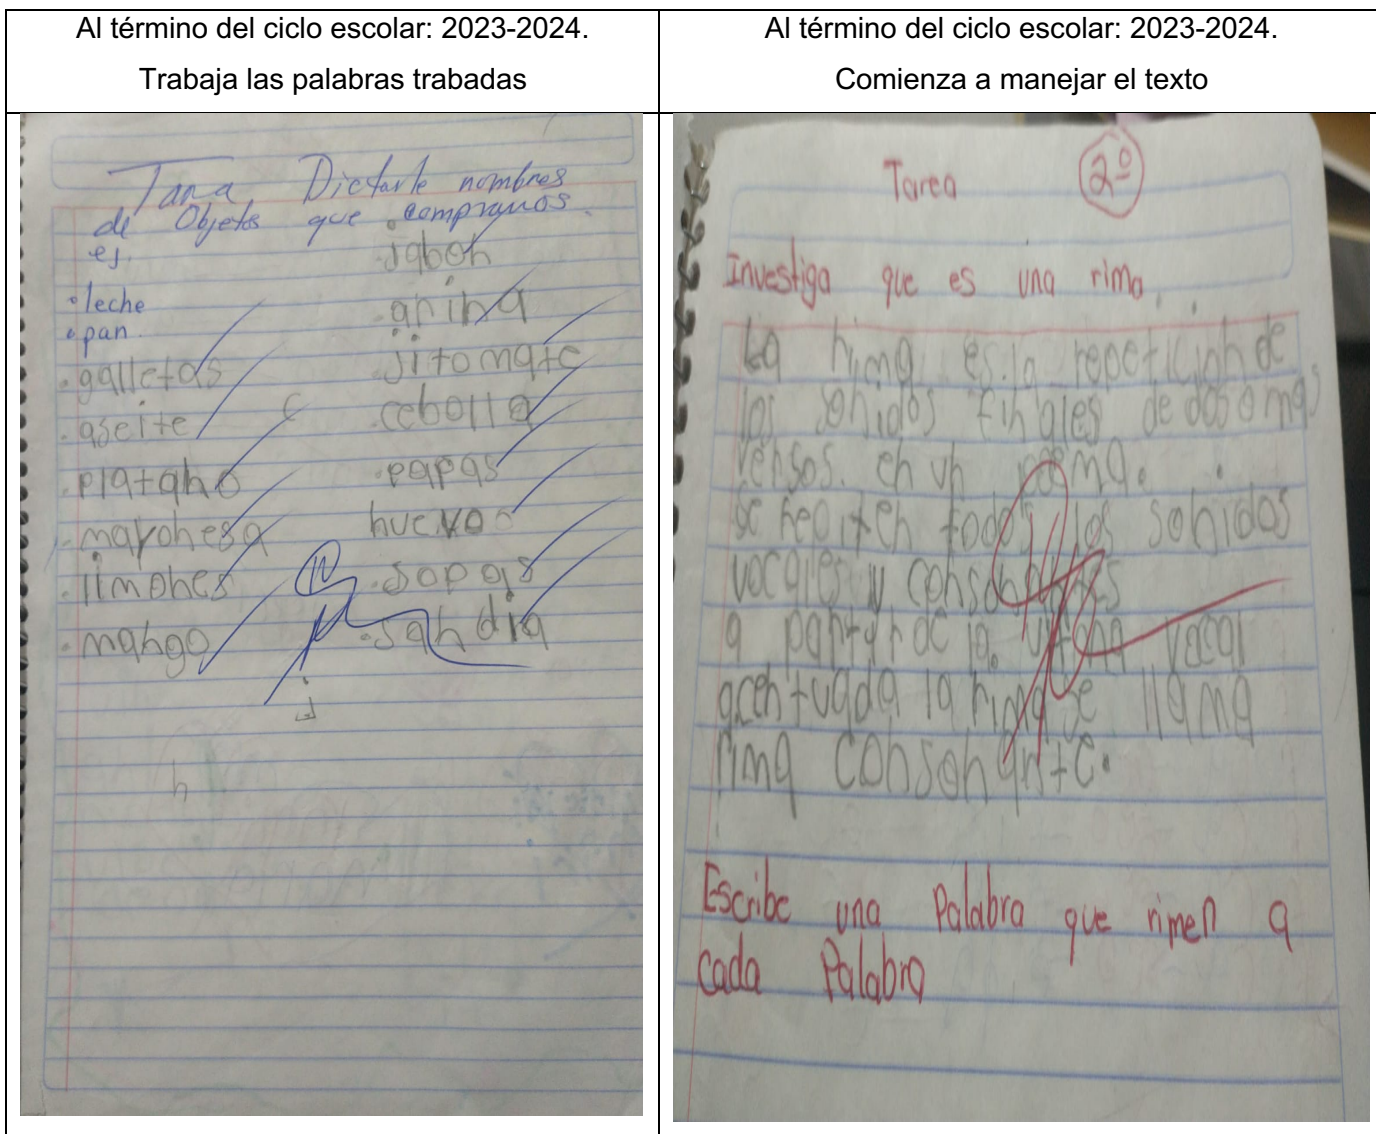 Al término del ciclo escolar: 2023-2024.
Trabaja las palabras trabadas
Tarea Dictarle nombres
de Objetos que compramos.
ej.
• leche
• pan
. galletas
. aseite
c
. platano
. mayonesa
. limones
. mango
. jabon
. arina
. jitomate
. cebolla
. papas
huevos
. sopas
. sandia
Al término del ciclo escolar: 2023-2024.
Comienza a manejar el texto
Tarea 2º
Investiga que es una rima.
La rima es la repeticion de
los sonidos finales de dos o mas
versos. en un poema.
se repiten todos los sonidos
vocales y consonantes
a partir de la. ultima vocal
acentuada la rima se llama
rima consonante.
Escribe una Palabra que rimen a
cada Palabra